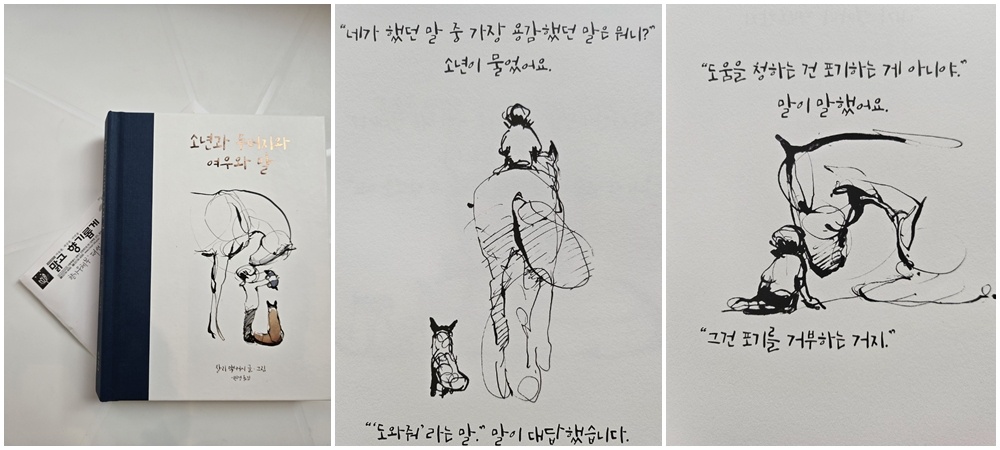 소년과 두더지와
여우와 말
찰리 맥커시 글·그림
맑고 향기롭게
"네가 했던 말 중 가장 용감했던 말은 뭐니?"
소년이 물었어요.
"'도와줘'라는 말." 말이 대답했습니다.
"도움을 청하는 건 포기하는 게 아니야."
말이 말했어요.
"그건 포기를 거부하는 거지."